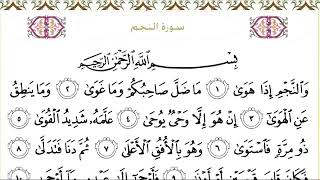 سورة النجم
بِسْمِ اللَّهِ الرَّحْمَٰنِ الرَّحِيمِ
وَالنَّجْمِ إِذَا هَوَىٰ ١ مَا ضَلَّ صَاحِبُكُمْ وَمَا غَوَىٰ ٢ وَمَا يَنطِقُ
عَنِ الْهَوَىٰ ٣ إِنْ هُوَ إِلَّا وَحْيٌ يُوحَىٰ ٤ عَلَّمَهُ شَدِيدُ الْقُوَىٰ ٥
ذُو مِرَّةٍ فَاسْتَوَىٰ ٦ وَهُوَ بِالْأُفُقِ الْأَعْلَىٰ ٧ ثُمَّ دَنَا فَتَدَلَّىٰ ٨